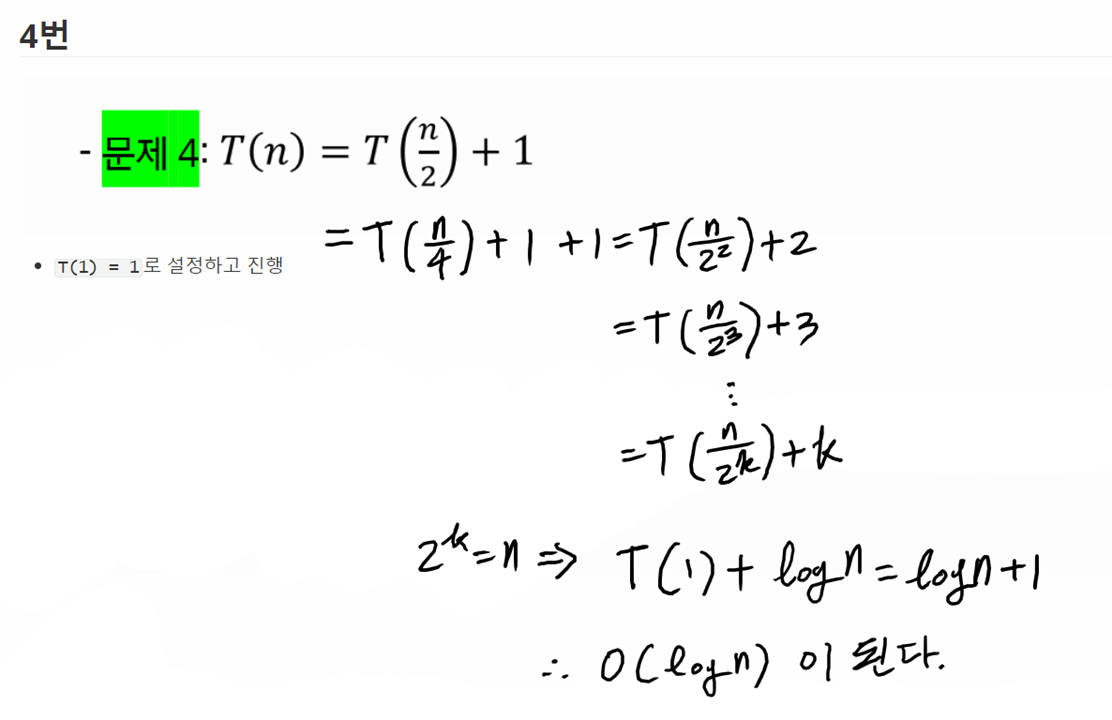 4번
- 문제 4: T(n) = T(n/2) + 1
= T(n/4) + 1 + 1 = T(n/2²) + 2
• T(1) = 1로 설정하고 진행
= T(n/2³) + 3
⋮
= T(n/2^k) + k
2^k = n ⇒ T(1) + log n = log n + 1
∴ O(log n) 이 된다.